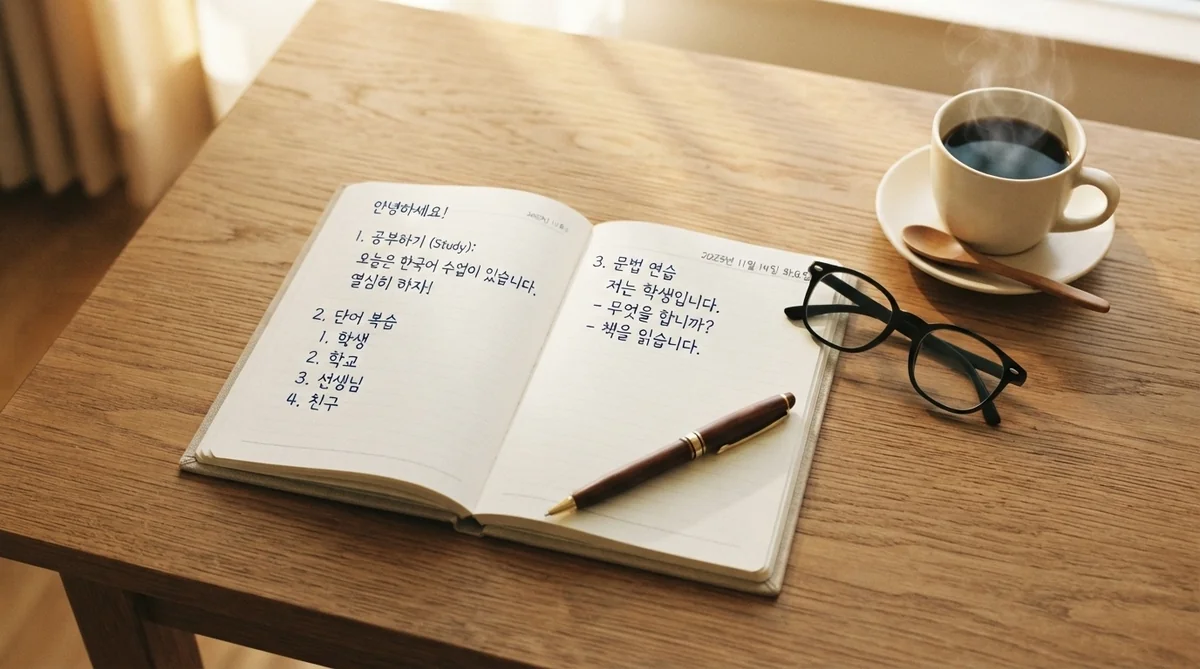 안녕하세요!
1. 공부하기 (Study):
오늘은 한국어 수업이 있습니다.
열심히 하자!
2. 단어 복습
1. 학생
2. 학교
3. 선생님
4. 친구
2023년 11월 14일
3. 문법 연습
저는 학생입니다.
- 무엇을 합니까?
- 책을 읽습니다.